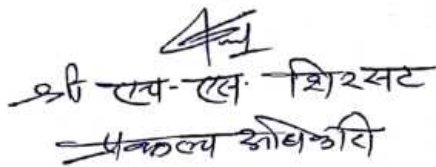 श्री एच-एस. शिरसट
प्रकल्प अधिकारी